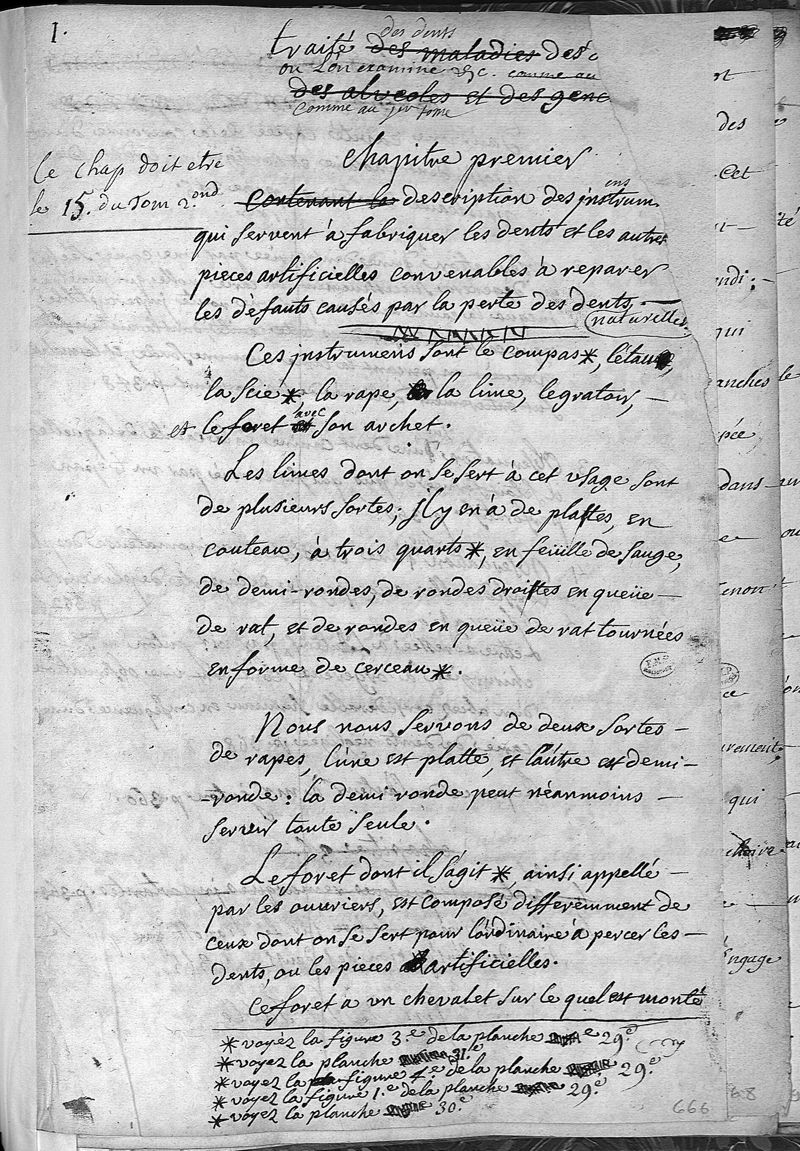 1.
des dents
traité des maladies des
ou l'on examine &c. comme au
des alveoles et des genc
comme au 1er tome
chapitre premier
Ce chap doit etre
le 15. du Tom 2.ond
contenant la description des instrumens
qui servent à fabriquer les dents et les autres
pieces artificielles convenables à reparer
les défauts causés par la perte des dents.
naturelles.
Ces instrumens sont le compas*, l'étau,
la scie*, la rape, la lime, le gratoir,
et le foret avec son archet.
Les limes dont on se sert à cet usage sont
de plusieurs sortes; il y en à de plattes, en
couteau, à trois quarts*, en feüille de sauge,
de demi-rondes, de rondes droittes en queüe
de rat, et de rondes en queüe de rat tournées
en forme de cerceau*.
Nous nous servons de deux sortes
de rapes, l'une est platte, et l'autre est demi-
-ronde: la demi ronde peut néanmoins
servir toute seule.
Le foret dont il s'agit*, ainsi appellé
par les ouvriers, est composé différemment de
ceux dont on se sert pour l'ordinaire à percer les
dents, ou les pieces artificielles.
Ce foret a un chevalet sur le quel est monté
* voyéz la figure 3.e de la planche 29.e
* voyez la planche 31.e
* voyez la figure 4.e de la planche 29.e
* voyez la figure 1.e de la planche 29.e
* voyez la planche 30.e
666
et
des
Cet
ndi;
qui
anches le
pée
dans
e
tenon
ce
urement,
qui
choire
Engage
68